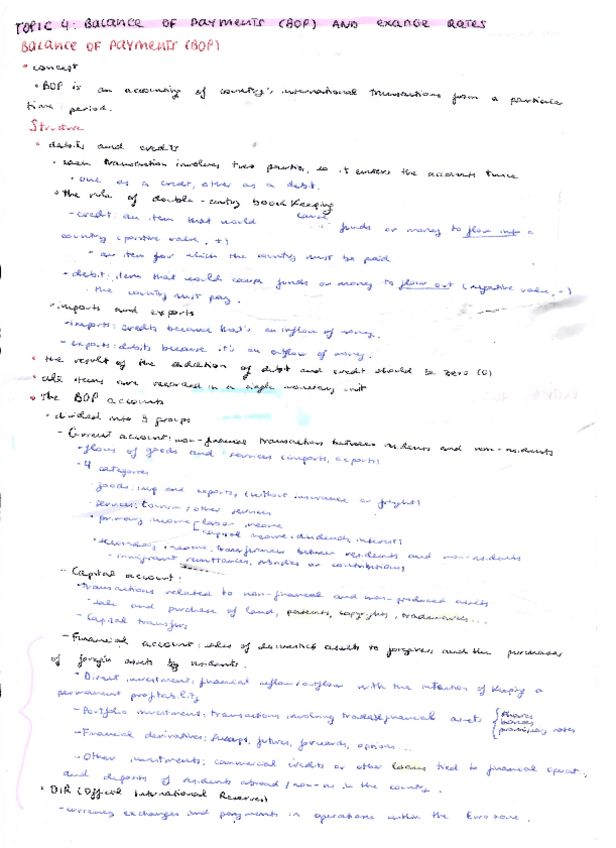 TOPIC 4: BALANCE OF PAYMENTS (BOP) AND EXANGE RATES
BALANCE OF PAYMENTS (BOP)
• concept
• BOP is an accounting of country's international transactions from a particular
time period.
Structure
• debits and credits
• each transaction involves two parties, so it enters the accounts twice
• one as a credit, other as a debit.
• the rule of double-entry bookkeeping
- credit: an item that would cause funds or money to flow into a
country (positive value, +)
• an item for which the country must be paid
- debit: item that would cause funds or money to flow out (negative value, -)
• the country must pay.
• imports and exports
- imports: credits because that's an inflow of money.
- exports: debits because it's an outflow of money.
• the result of the addition of debit and credit should be zero (0)
• all items are recorded in a single monetary unit
• The BOP accounts
• divided into 3 groups
- Current account: non-financial transactions between residents and non-residents
- flows of goods and services (imports, exports)
- 4 categories
goods: imp and exports, (without insurance or freight)
- services: tourism / other services
• primary income labor income
capital income: dividends, interest)
• secondary income: transfers between residents and non-residents
- immigrant remittances, subsidies or contributions)
- Capital account:
• transactions related to non-financial and non-produced assets
- sale and purchase of land, patents, copyrights, trademarks...
- Capital transfers
- Financial account: sales of domestics assets to foreigners and the purchases
of foreign assets by residents.
• Direct investment: financial inflow/outflow with the intention of keeping a
permanent profitability
- Portfolio investment: transactions involving tradable financial assets shares
bonds
promissory notes
- Financial derivatives: swaps, futures, forwards, options...
- Other investments: commercial credits or other loans tied to financial operat.,
and deposits of residents abroad / non-res in the country.
• OIR (Official International Reserves)
- currency exchanges and payments in operations within the Eurozone.